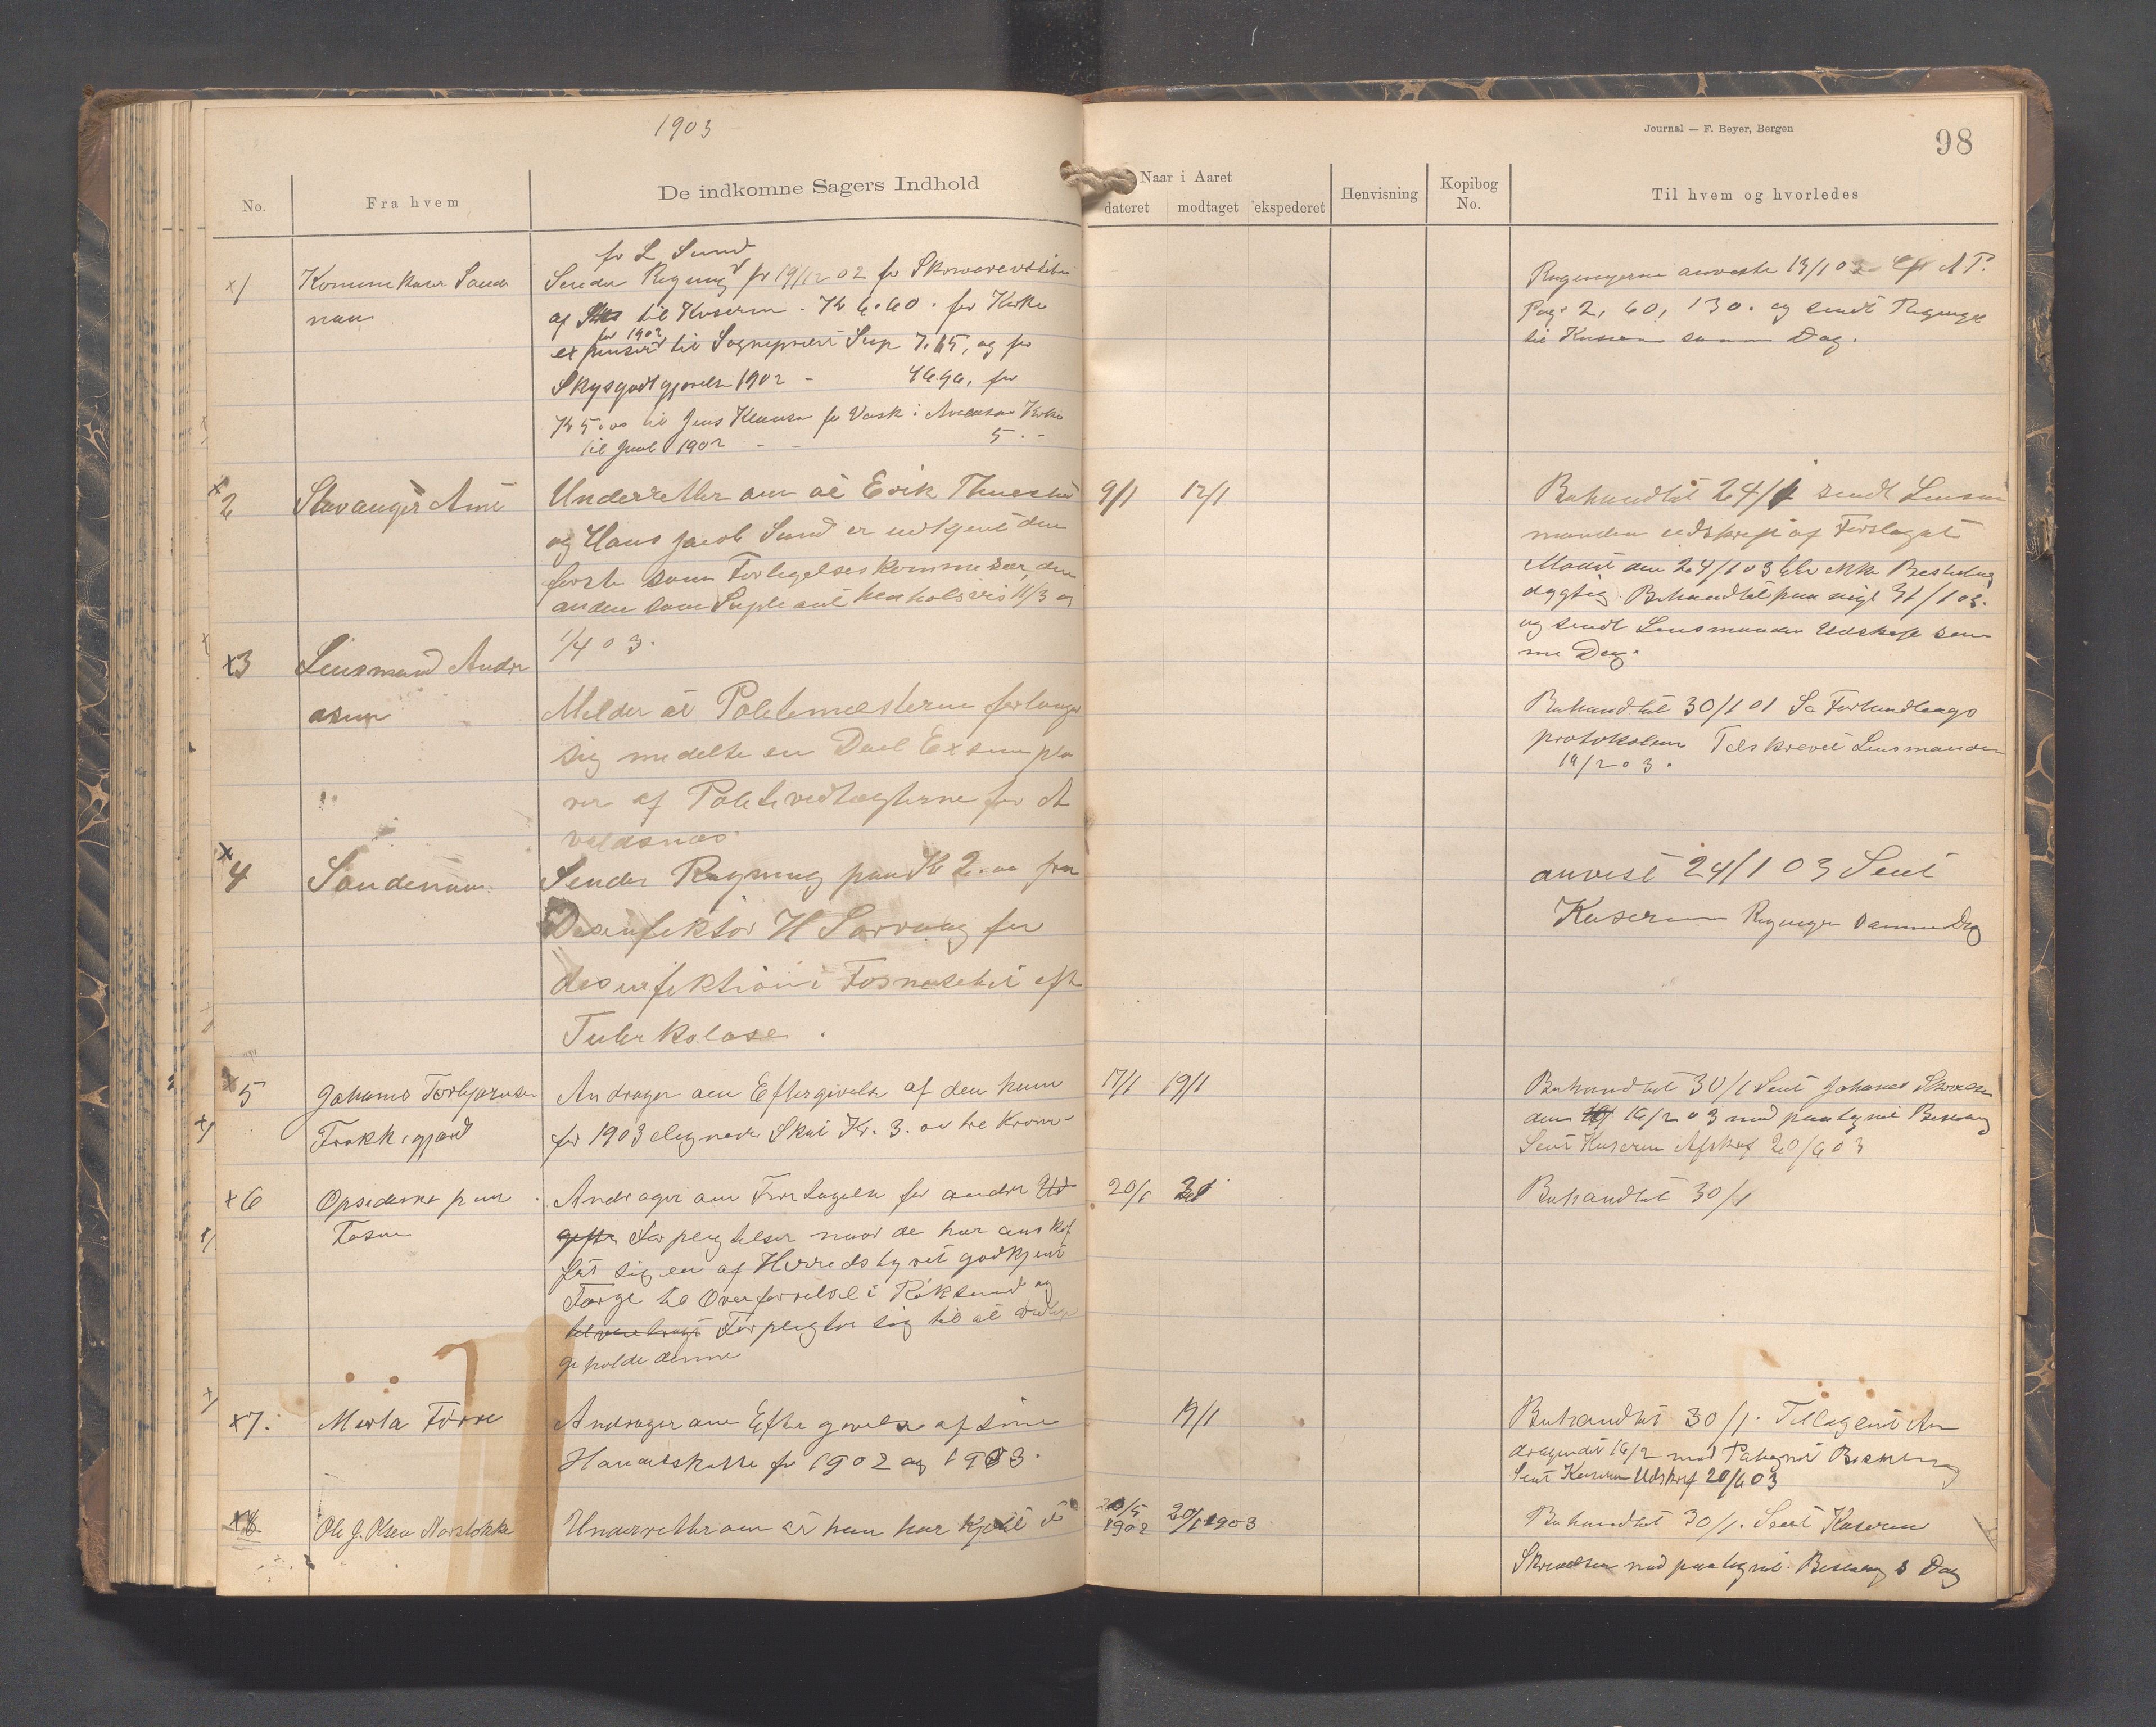 1903
Journal — F. Beyer, Bergen
98
No.
Fra hvem
De indkomne Sagers Indhold
Naar i Aaret
dateret
modtaget
ekspederet
Henvisning
Kopibog No.
Til hvem og hvorledes
x1
Komme Kaser Sande
nam
for L. Sund
Sender Regning for 19/12 02 for
af til Kaseren. Kr 6.60. for Kirke
for 1902
til Sogneprest 7.15, og for
Skysgodtgjørelse 1902 - 46.96, for
Kr 5.00 til Jens Klausen for Vask i Kirke
til Juul 1902 - - 5.-
Regningerne anviste 13/1 03
Pag. 2, 60, 130. og sendt Regninger
til Kaseren samme Dag.
x2
Stavanger Amt
Underretter om at Erik
og Hans Jacob Sund er udkjent den
første som Forligelseskommesær, den
anden som Supleant henholsvis 11/3 og
1/4 03.
9/1
12/1
Behandlet 24/1 sendt Lens
manden udskrift af Forslaget
Mødet den 24/1 03 blev ikke Beslutnings
dygtig. Behandlet paa nyt 31/1 03.
og sendt Lensmanden Udskrift sam
me Dag.
x3
Lensmand Andre
asen
Melder at Politimesteren forlanger
sig medelte en Deel Exsempla
rer af Politivedtægterne for A
valdsnæs
Behandlet 30/1 01 Se Forhandlings
protokolen Tilskrevet Lensmanden
19/2 03.
x4
Sandenam.
Sender Regning paa Kr 2.00 fra
Desinfektør H for
desinfektion i Fosnesetet eft
Tuberkolose.
anvist 24/1 03 Sent
Kaseren Regningen samme Dag
x5
Johannes Torbjørnsen
Trokkigjærd
Andrager om Eftergivelse af den ham
for 1903 elignede Skat Kr. 3.00 tre Kroner
17/1
19/1
Behandlet 30/1 Sent Johannes Skrivelsen
den 16/2 03 med paategnet Beslutning
Sent Kaseren Afskrift 20/6 03
x6
Opsiderne paa
Fosen
Andrager om Fritagelse for andre Ud
gifter Forpligtelser naar de har anskaf
fet sig en af Herredstyret godkjent
Færge til Overførelse i Røksund og
Forpligter sig til at vedlige
holde denne
20/1
21
Behandlet 30/1
x7.
Marta Førre
Andrager om Eftergivelse af sine
Handelskatte for 1902 og 1903.
19/1
Behandlet 30/1. Tilbagsent An
dragendet 16/2 med Pategnet Beslutning
Sent Kaseren Udskrift 20/6 03
x8
Ole J. Olsen Norstokke
Underretter om at han har kjøbt
20/5
1902
20/1 1903
Behandlet 30/1. Sent Kaseren
Skrivelsen med paategnet Beslutning s Dag